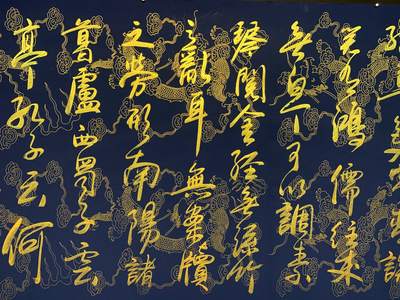 談
笑有鴻儒往來
無白丁可以調素
琴閱金經無絲竹
之亂耳無案牘
之勞形南陽諸
葛廬西蜀子雲
亭孔子云何